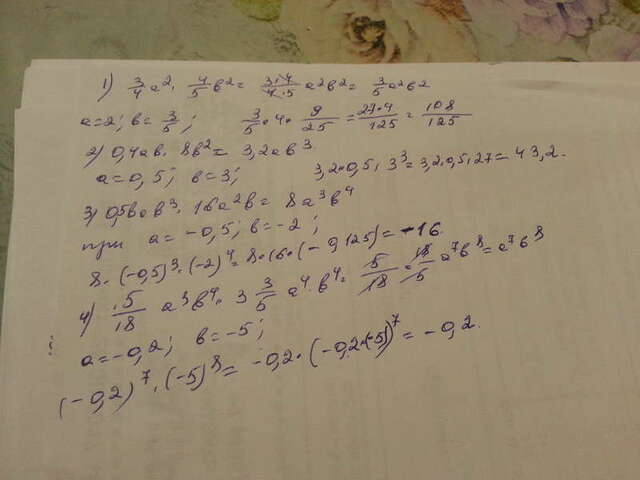 1) 3/4 a². 4/5 b² = 3·4/4·5 a²b² = 3/5 a²b²
a=2; b= 3/5; 3/5 · 4 · 9/25 = 27·4/125 = 108/125
2) 0,4ab · 8b² = 3,2ab³.
a=0,5; b=3; 3,2·0,5·3³=3,2·0,5·27=43,2.
3) 0,5bab³·16a²b = 8a³b⁴
при a=-0,5; b=-2;
8·(-0,5)³·(-2)⁴=8·16·(-0,125)=-16.
4) 5/18 a³b⁴· 3 3/5 a⁴·b⁴= 5/18 · 18/5 a⁷b⁸=a⁷b⁸
a=-0,2; b=-5;
(-0,2)⁷·(-5)⁸=-0,2·(-0,2·(-5))⁷=-0,2.